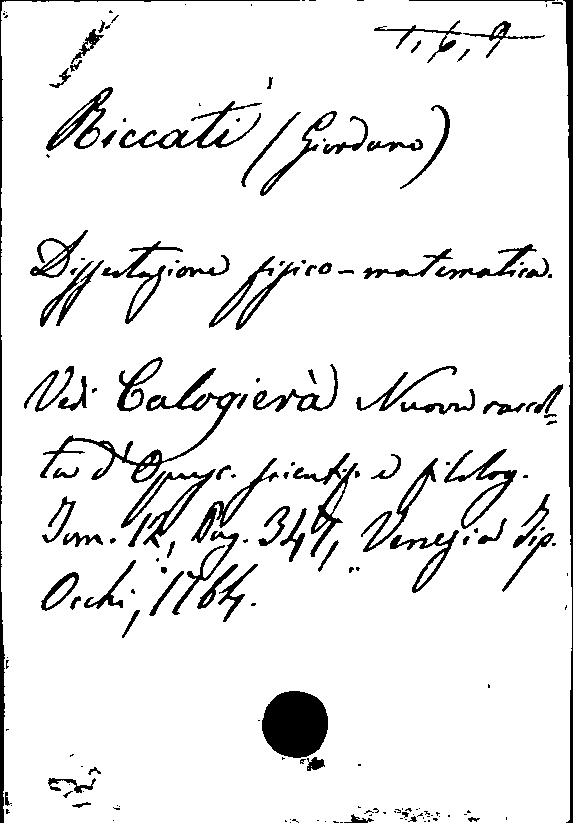 1, 6, 9
Riccati (Giordano)
Dissertazione fisico-matematica.
Vedi Calogierà Nuova raccol=
ta d'Opusc. scientif. e filolog.
Tom. 12, Pag. 347, Venezia Tip.
Occhi, 1764.